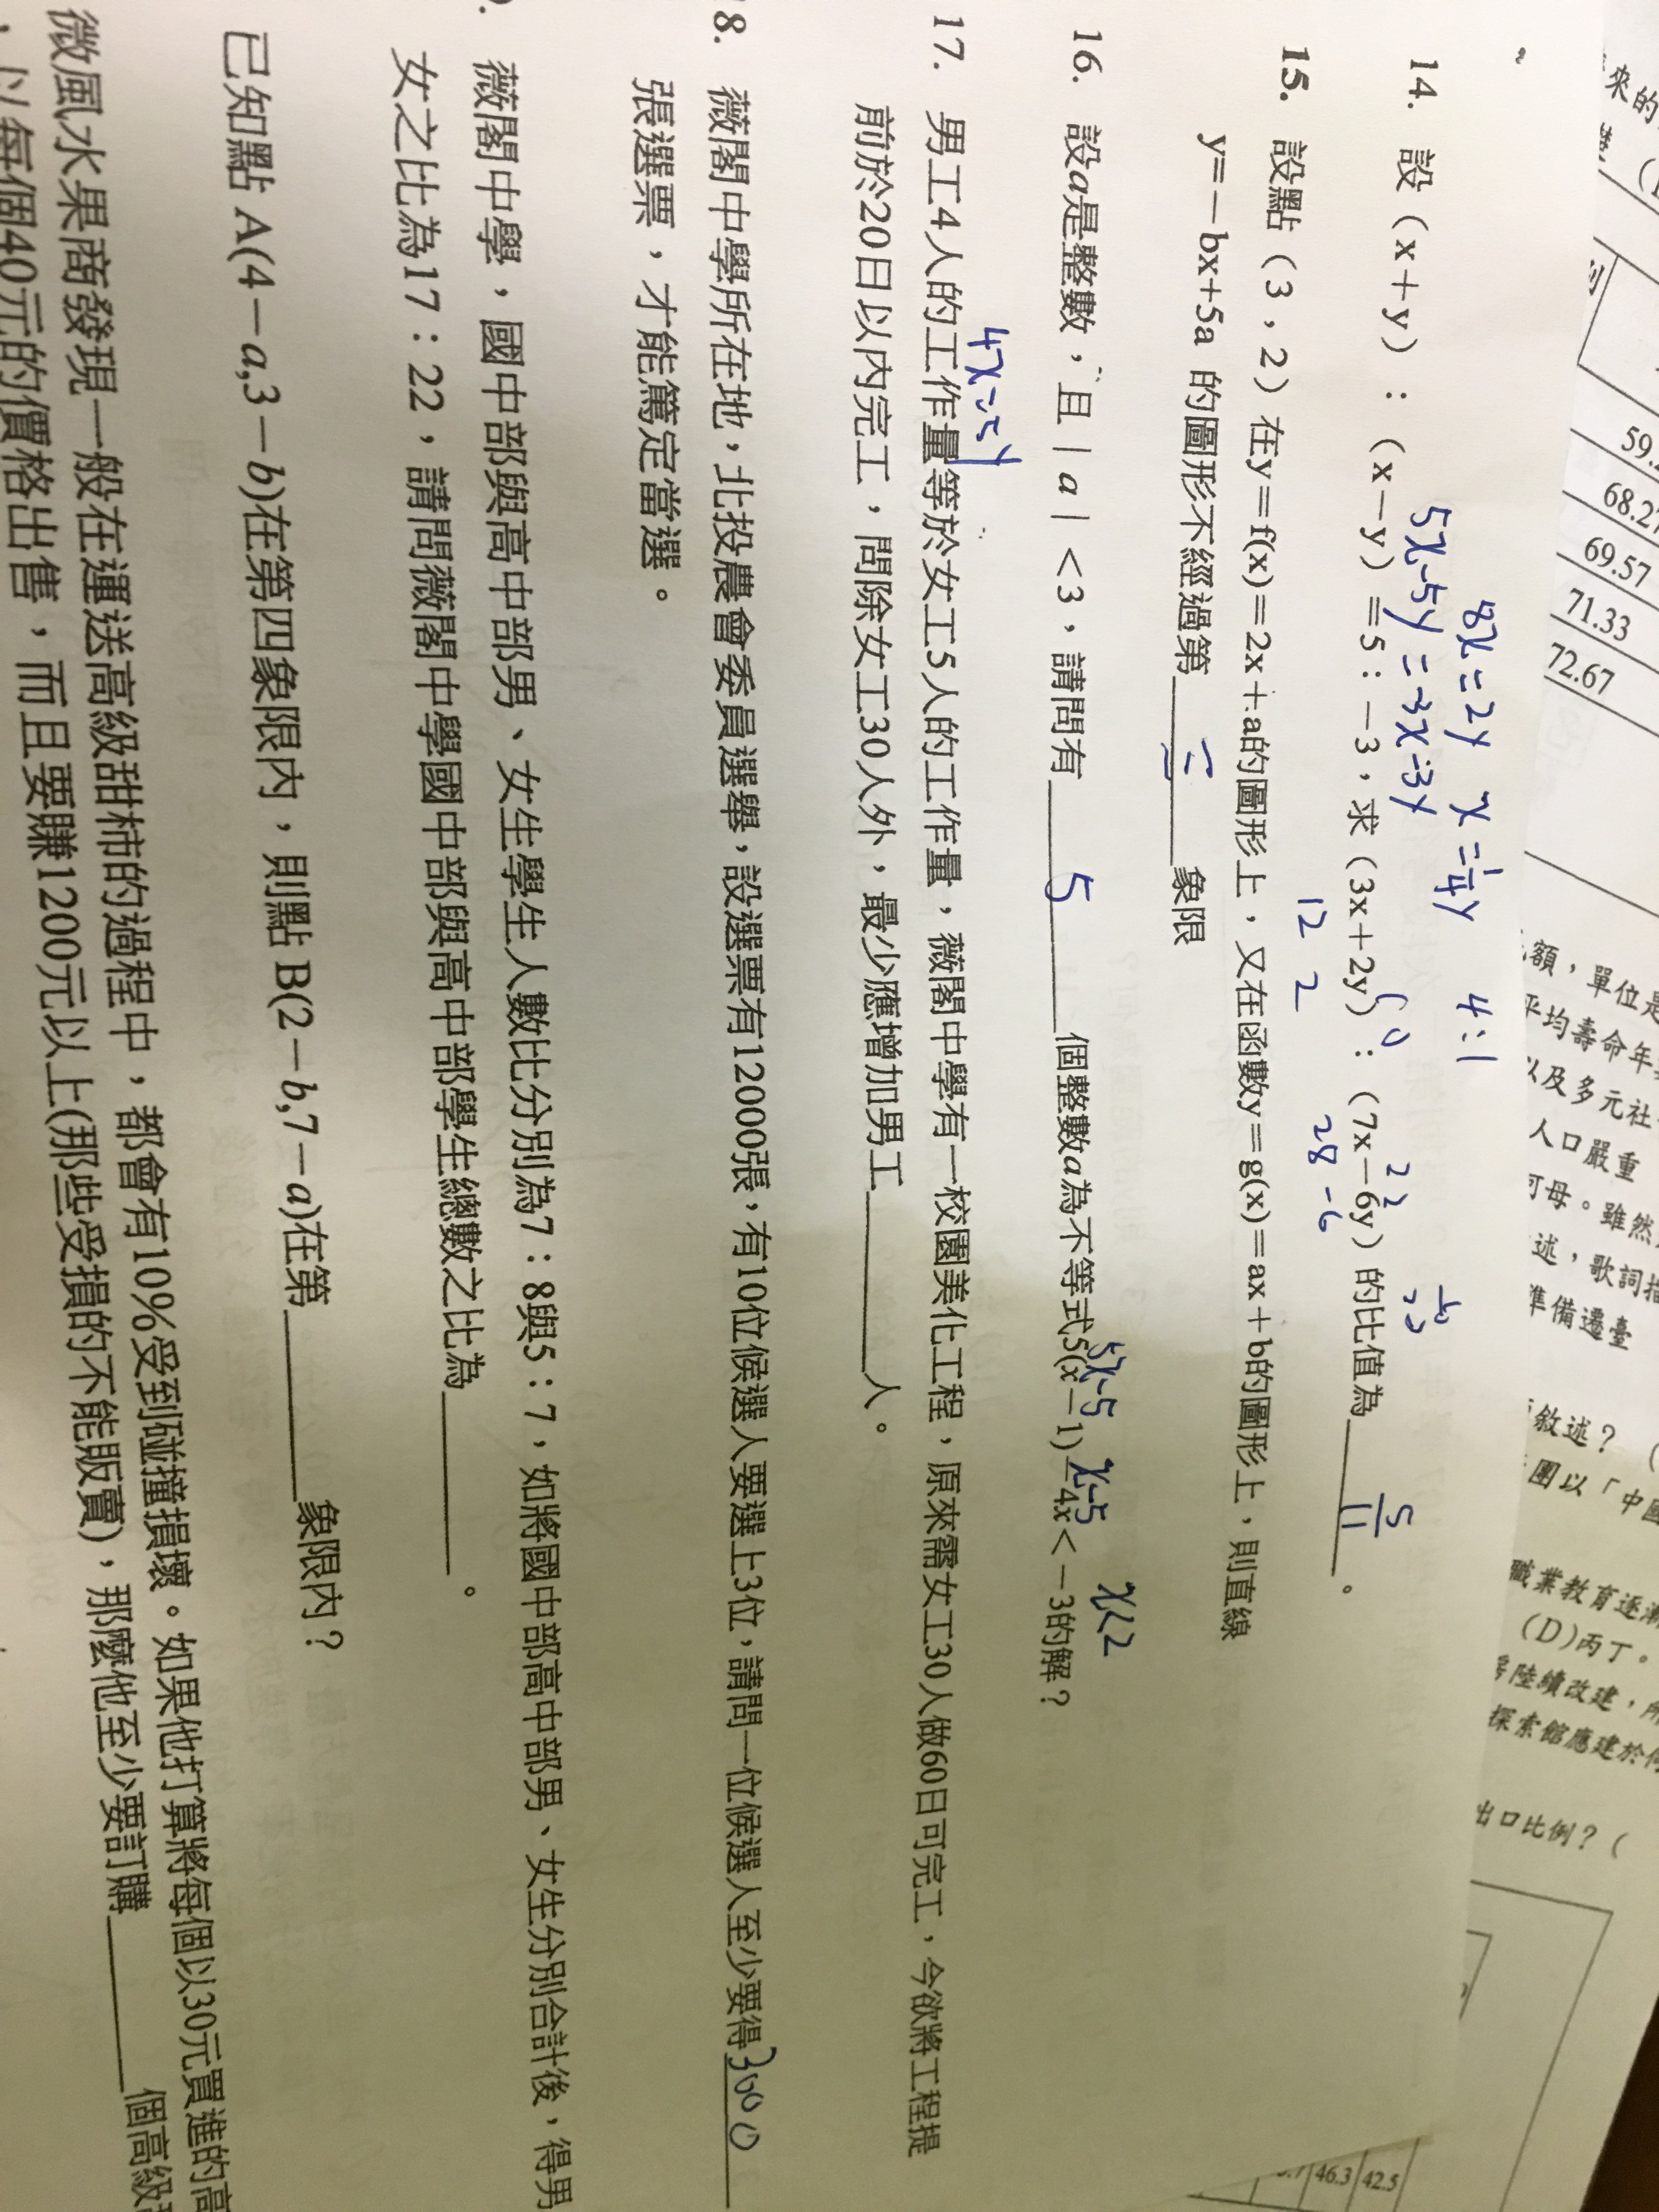 8x=2y x=1/4y 4:1
5x-5y=-3x-3y
14. 設（x+y）：（x-y）=5：-3，求（3x+2y）：（7x-6y）的比值為 5/11 。
12 2 28 -6
15. 設點（3，2）在y=f(x)=2x+a的圖形上，又在函數y=g(x)=ax+b的圖形上，則直線
y=-bx+5a 的圖形不經過第 二 象限
5x-5 x-5 x<2
16. 設a是整數，且｜a｜<3，請問有 5 個整數a為不等式5(x-1)-4x<-3的解？
4x=5y
17. 男工4人的工作量等於女工5人的工作量，薇閣中學有一校園美化工程，原來需女工30人做60日可完工，今欲將工程提
前於20日以內完工，問除女工30人外，最少應增加男工 人。
8. 薇閣中學所在地，北投農會委員選舉，設選票有12000張，有10位候選人要選上3位，請問一位候選人至少要得 3000
張選票，才能篤定當選。
薇閣中學，國中部與高中部男、女生學生人數比分別為7：8與5：7，如將國中部高中部男、女生分別合計後，得男
女之比為17：22，請問薇閣中學國中部與高中部學生總數之比為 。
已知點 A(4-a,3-b)在第四象限內，則點 B(2-b,7-a)在第 象限內？
微風水果商發現一般在運送高級甜柿的過程中，都會有10%受到碰撞損壞。如果他打算將每個以30元買進的高
以每個40元的價格出售，而且要賺1200元以上(那些受損的不能販賣)，那麼他至少要訂購 個高級
來的
59.
68.27
69.57
71.33
72.67
額，單位是
平均壽命年
以及多元社
人口嚴重
可母。雖然
述，歌詞描
準備遷臺
敘述？（
團以「中國
職業教育逐漸
（D）丙丁。
陸續改建，所
探索館應建於何
出口比例？（
46.3 42.5